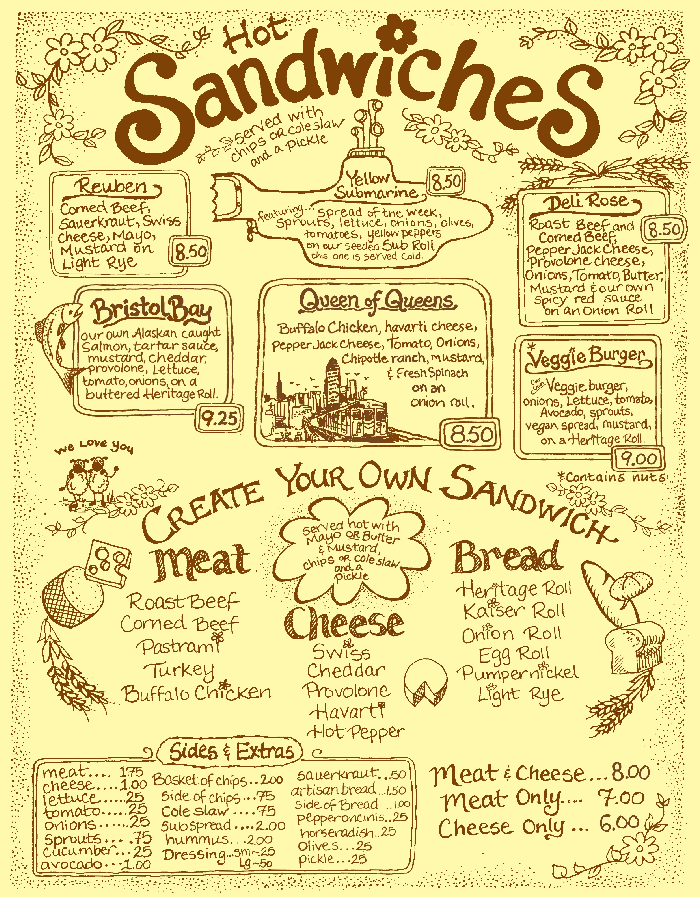 Hot
Sandwiches
served with
chips or coleslaw
and a pickle
Reuben
Corned Beef,
Sauerkraut, Swiss
cheese, Mayo,
Mustard on
Light Rye
8.50
Yellow
Submarine
8.50
featuring: spread of the week,
sprouts, lettuce, onions, olives,
tomatoes, yellow peppers
on our seeded Sub Roll
this one is served cold.
Deli Rose
Roast Beef and
Corned Beef,
Pepper Jack Cheese,
Provolone cheese,
Onions, Tomato, Butter,
Mustard & our own
spicy red sauce
on an Onion Roll
8.50
Bristol Bay
our own Alaskan caught
Salmon, tartar sauce,
mustard, cheddar,
provolone, Lettuce,
tomato, onions, on a
buttered Heritage Roll.
9.25
Queen of Queens
Buffalo Chicken, havarti cheese,
Pepper Jack cheese, Tomato, Onions,
Chipotle ranch, mustard,
& Fresh Spinach
on an
onion roll.
8.50
*Veggie Burger
Veggie burger,
onions, Lettuce, tomato,
Avocado, sprouts,
vegan spread, mustard,
on a Heritage Roll
9.00
*Contains nuts
We Love You
Create Your Own Sandwich
served hot with
Mayo or Butter
& Mustard,
chips or coleslaw
and a
pickle
Meat
Roast Beef
Corned Beef
Pastrami
Turkey
Buffalo Chicken
Cheese
Swiss
Cheddar
Provolone
Havarti
Hot Pepper
Bread
Heritage Roll
Kaiser Roll
Onion Roll
Egg Roll
Pumpernickel
Light Rye
Sides & Extras
meat.... 1.75
cheese....1.00
lettuce.....25
tomato.....25
onions.....25
sprouts....75
cucumber...25
avocado...1.00
Basket of chips..2.00
Side of chips...75
Cole slaw....75
Sub spread....2.00
hummus...2.00
Dressing..sm~25
Lg~50
sauerkraut..50
artisan bread..1.50
side of Bread..1.00
pepperoncinis..25
horseradish..25
Olives...25
pickle...25
Meat & Cheese...8.00
Meat Only.... 7.00
Cheese Only... 6.00